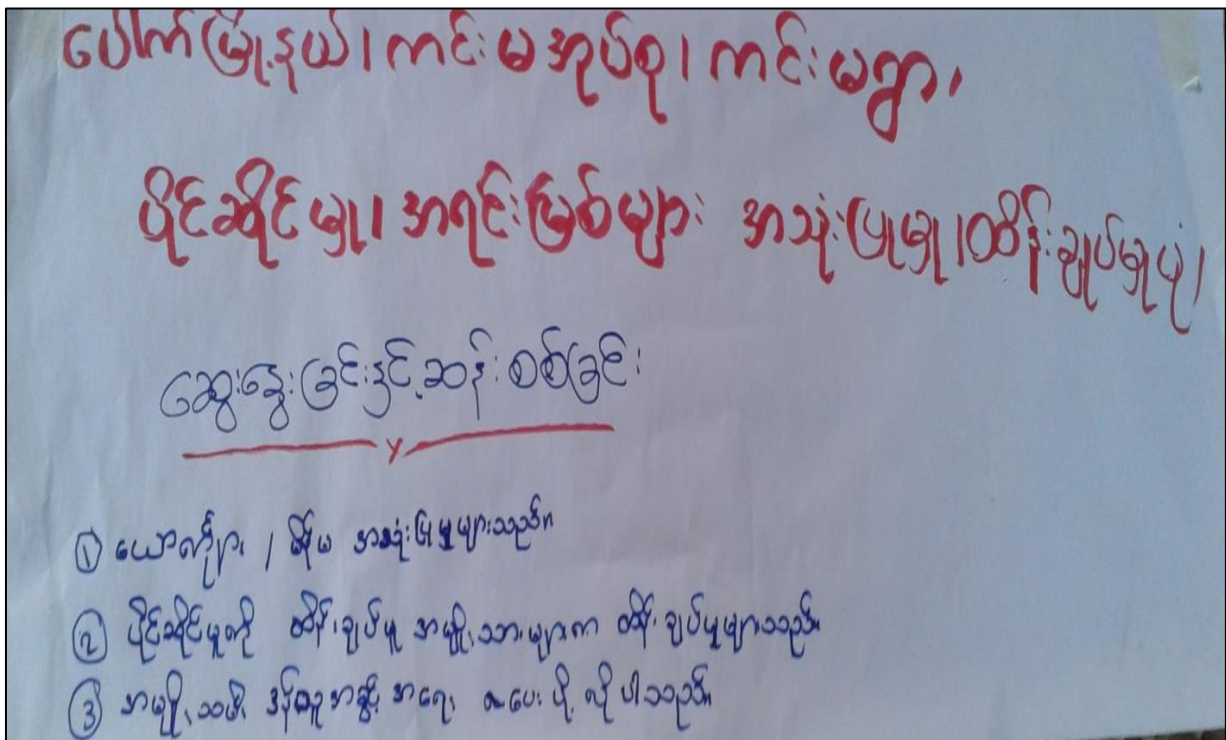 ပေါက်မြို့နယ်၊ ကင်းမအုပ်စု၊ ကင်းမရွာ၊
ပိုင်ဆိုင်မှု၊ အရင်းမြစ်များ အသုံးပြုမှု၊ ထိန်းချုပ်မှုပုံ၊
ဆွေးနွေးခြင်းနှင့် ဆန်းစစ်ခြင်း
① ယောက်ျား / မိန်းမ အသုံးပြုမှုများသည်။
② ပိုင်ဆိုင်မှုကို ထိန်းချုပ်မှု အမျိုးသားများက ထိန်းချုပ်မှုများသည်။
③ အမျိုးသမီး အရေး ပေးဖို့ လိုပါသည်။